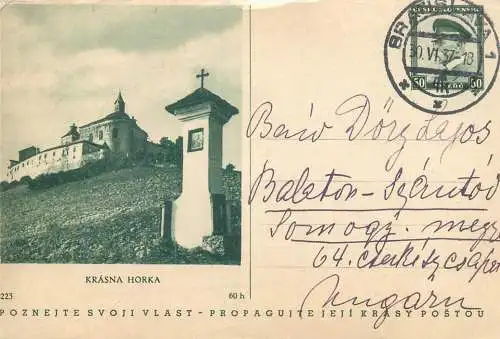 KRÁSNA HORKA
223
60 h
BRATISLAVA 1
30.VI.37-18
ČESKOSLOVENSKO
50 50
Báró Dőry Lajos
Balaton-Szántód
Somogy. megye
64. cserkészcsapat
Ungarn
POZNEJTE SVOJI VLAST - PROPAGUJTE JEJÍ KRÁSY POŠTOU